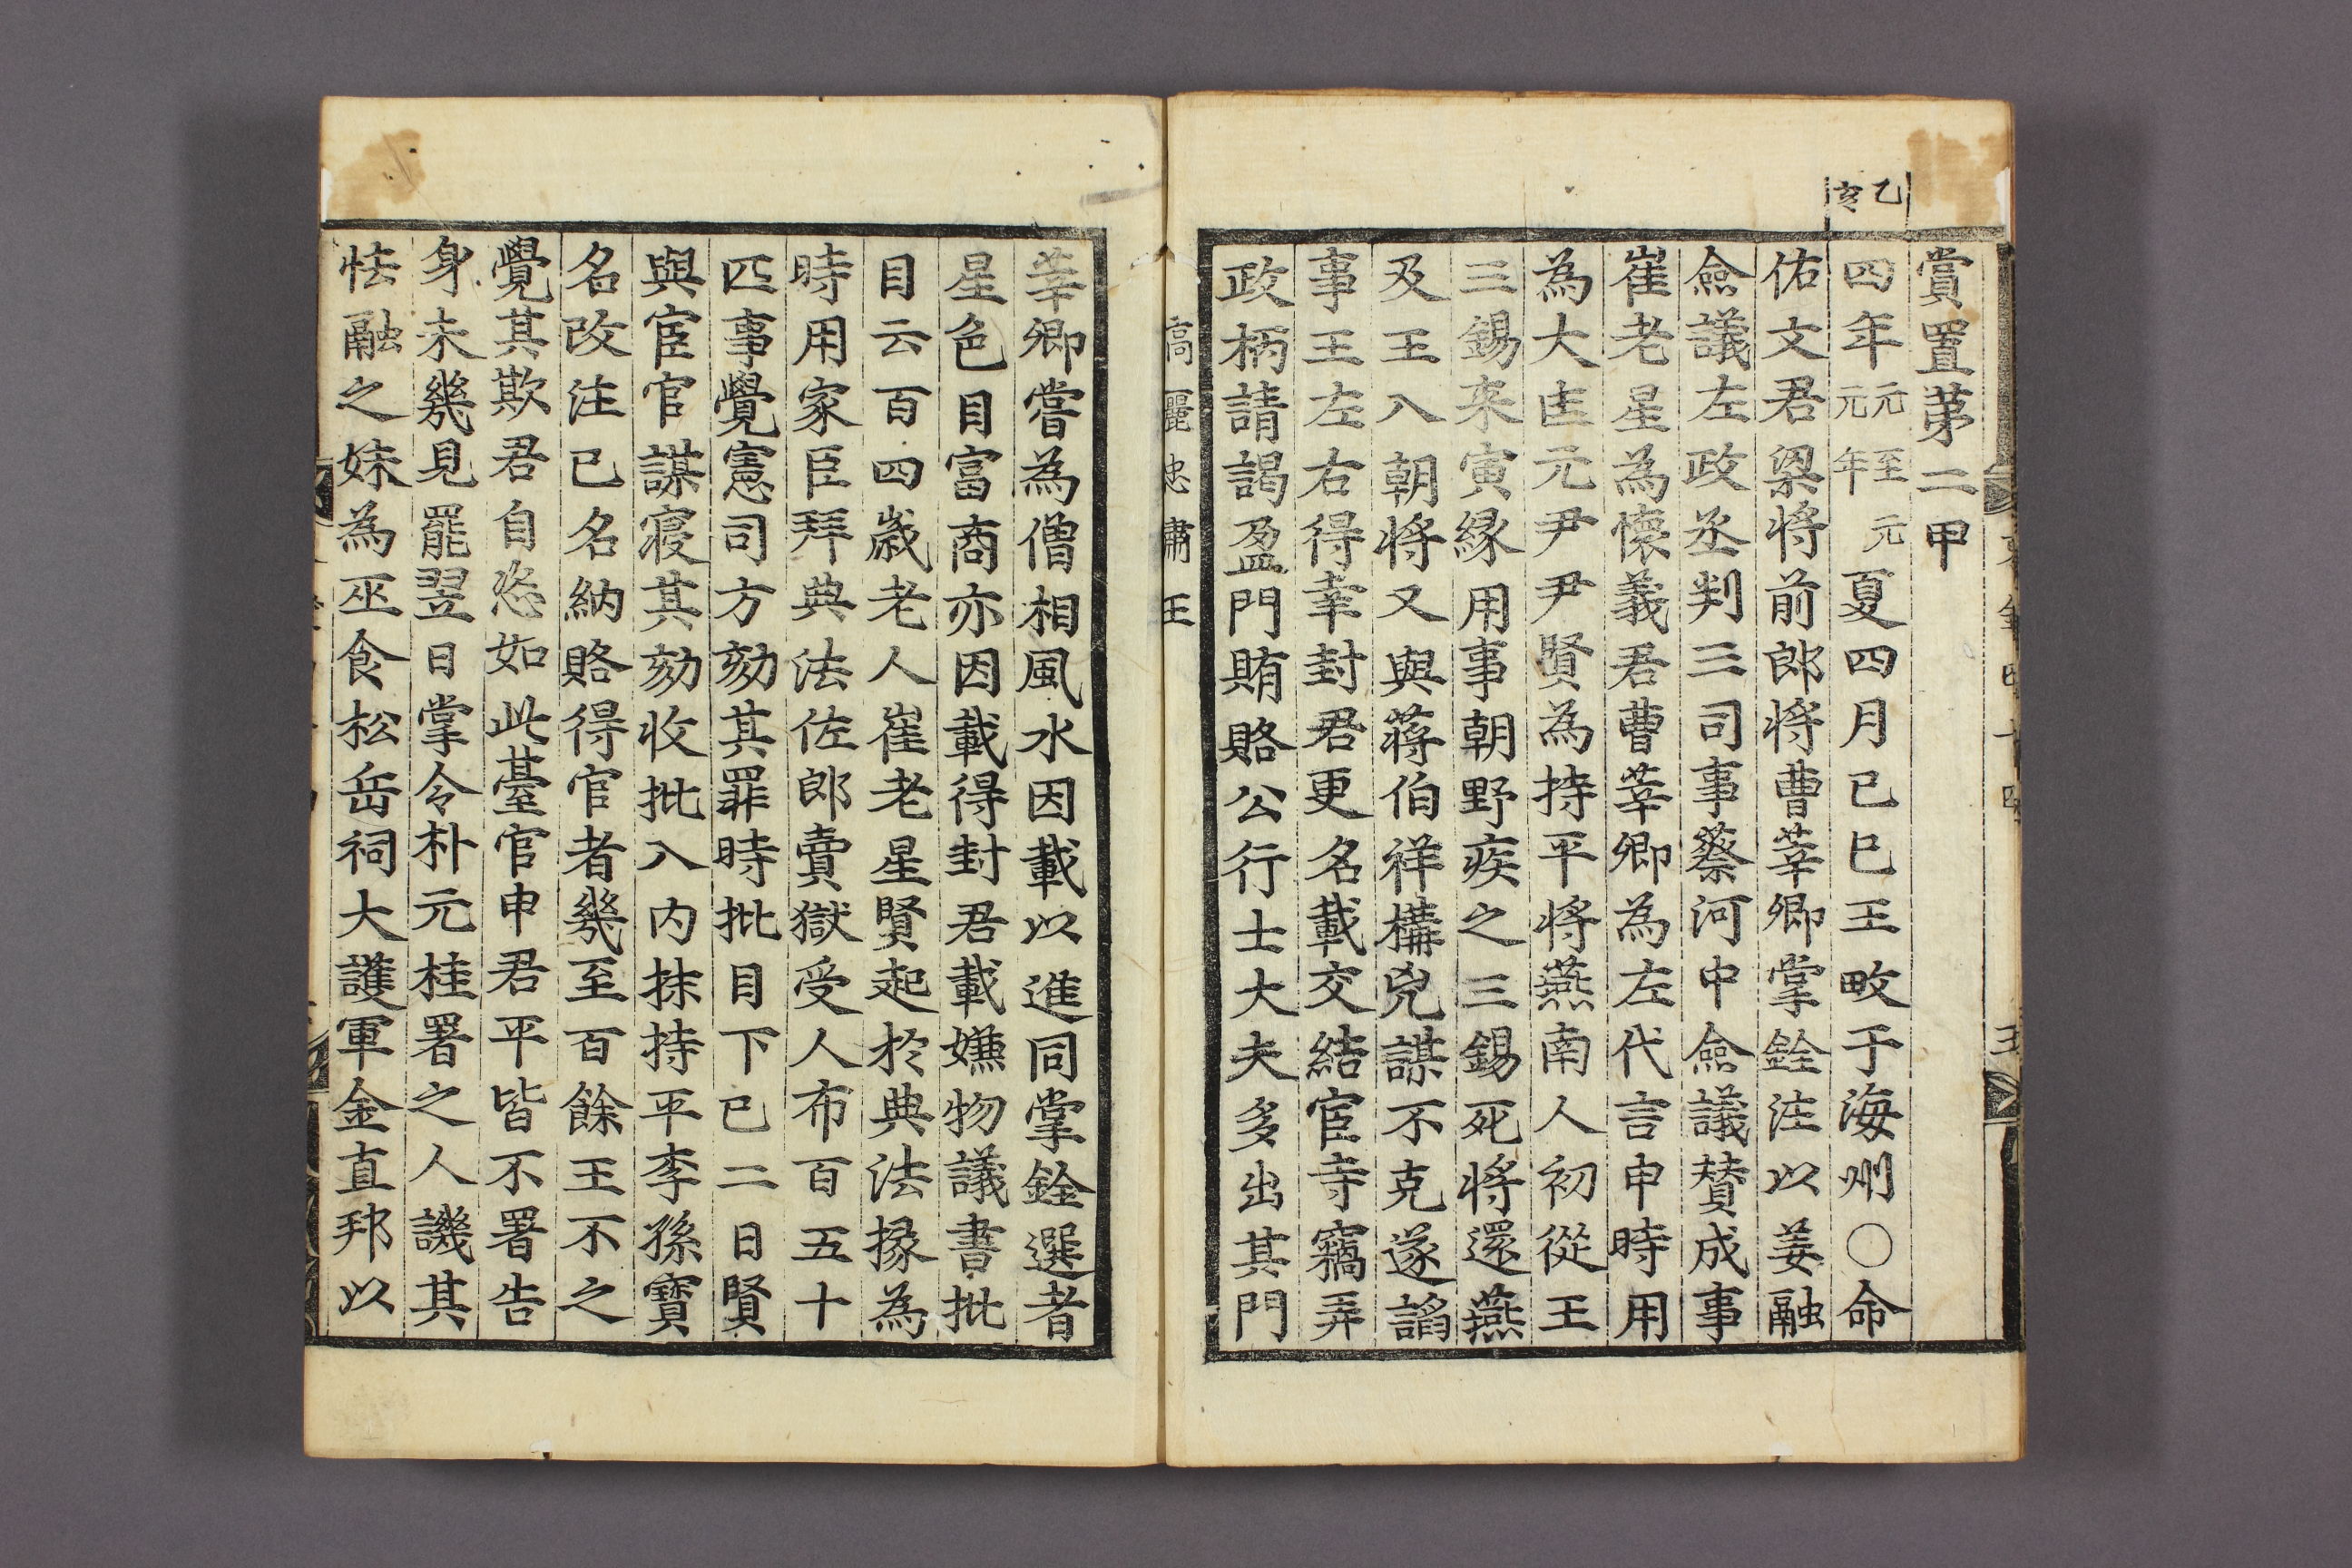 乙亥
賞置苐二甲
四年元至元元年夏四月已巳王畋于海州○命
佑文君梁將前郎將曹莘卿掌銓注以姜融
僉議左政丞判三司事蔡河中僉議賛成事
崔老星為懷義君曹莘卿為左代言申時用
為大匡元尹尹賢為持平將燕南人初從王
三錫来寅縁用事朝野疾之三錫死將還燕
及王入朝將又與蔣伯祥構兇謀不克遂謟
事王左右得幸封君更名載交結宦寺竊弄
政柄請謁盈門賄賂公行士大夫多出其門
高麗忠肅王
莘卿嘗為僧相風水因載以進同掌銓選者
星色目富商亦因載得封君載嫌物議書批
目云百四歲老人崔老星賢起於典法掾為
時用家臣拜典法佐郎賣獄受人布百五十
匹事覺憲司方劾其罪時批目下已二日賢
與宦官謀寢其劾收批入内抹持平李孫寶
名改注已名納賂得官者幾至百餘王不之
覺其欺君自恣如此臺官申君平皆不署告
身未幾見罷翌日掌令朴元桂署之人譏其
怯融之妹為巫食松岳祠大護軍金直邦以